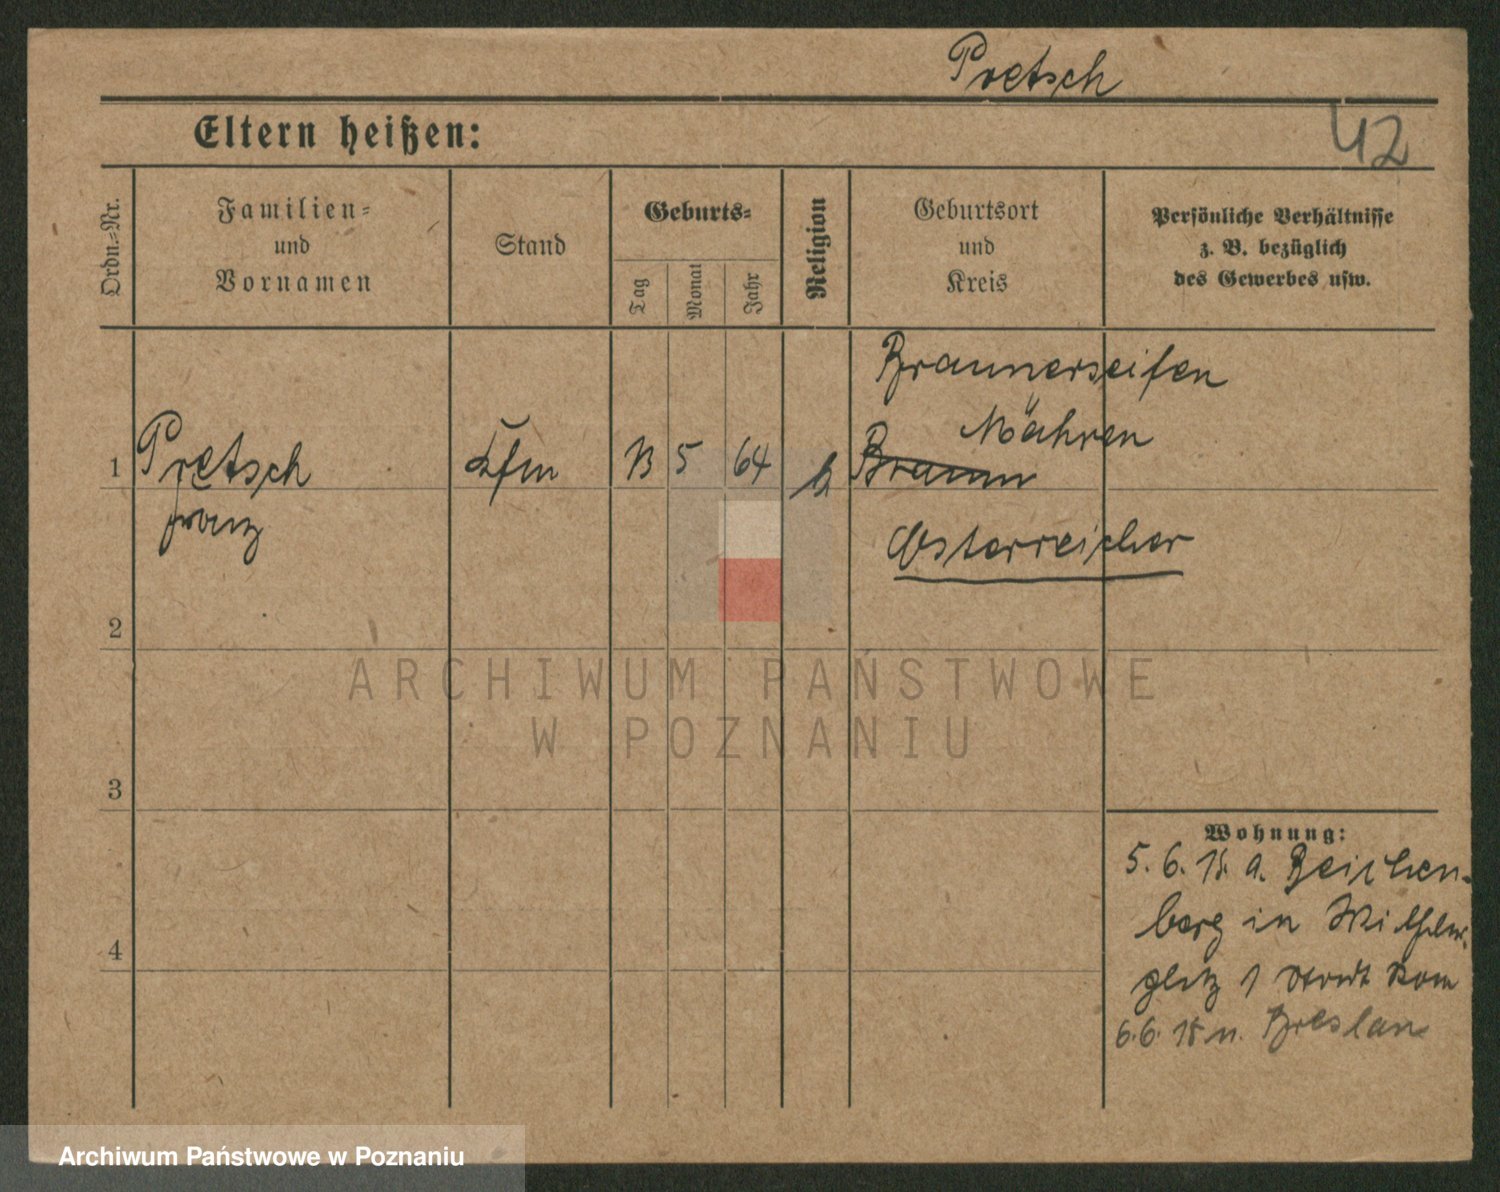 Pretsch
Eltern heißen:
42
Ordn.=Nr.
Familien=
und
Vornamen
Stand
Geburts=
Tag
Monat
Jahr
Religion
Geburtsort
und
Kreis
Persönliche Verhältnisse
z. B. bezüglich
des Gewerbes usw.
Braunerseifen
Mähren
1 Pretsch Kfm 13 5 64 k Braunn
Franz
Österreicher
2
3
4
Wohnung:
5. 6. 18. a. Reichen-
berg in Wilhelm
platz 1 Stadt Rom
6. 6. 18 n. Breslau
ARCHIWUM PAŃSTWOWE
W POZNANIU
Archiwum Państwowe w Poznaniu